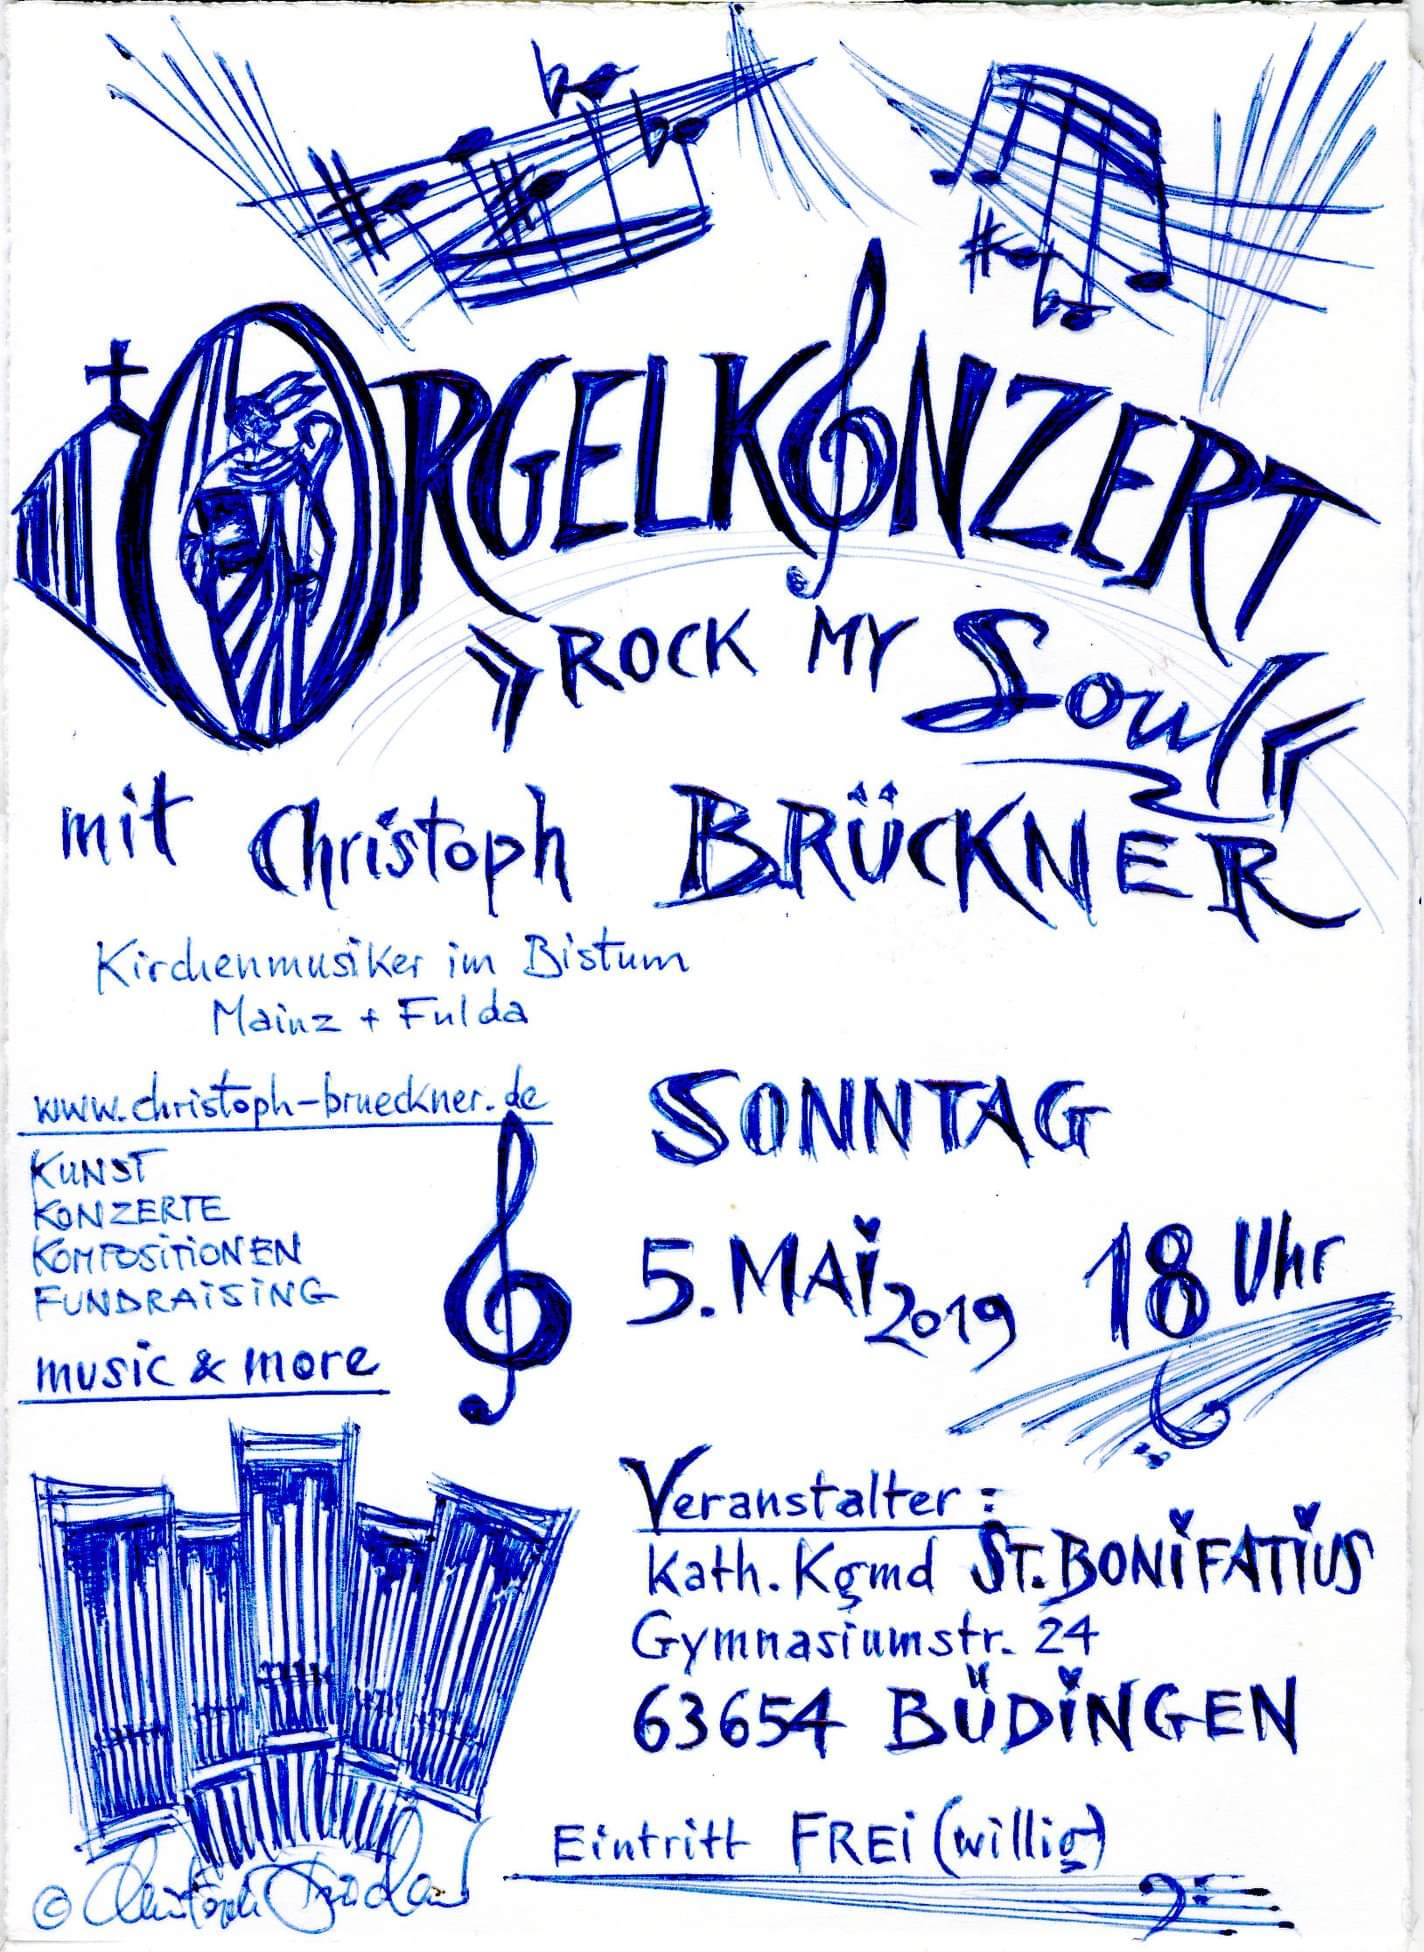 ORGELKONZERT
»ROCK MY Soul«
mit Christoph BRÜCKNER
Kirchenmusiker im Bistum
Mainz + Fulda
www.christoph-brueckner.de
KUNST
KONZERTE
KOMPOSITIONEN
FUNDRAISING
music & more
SONNTAG
5. MAi 2019 18 Uhr
Veranstalter:
Kath. Kgmd ST. BONiFATiUS
Gymnasiumstr. 24
63654 BÜDiNGEN
Eintritt FREi (willig)
© Christoph Brückner